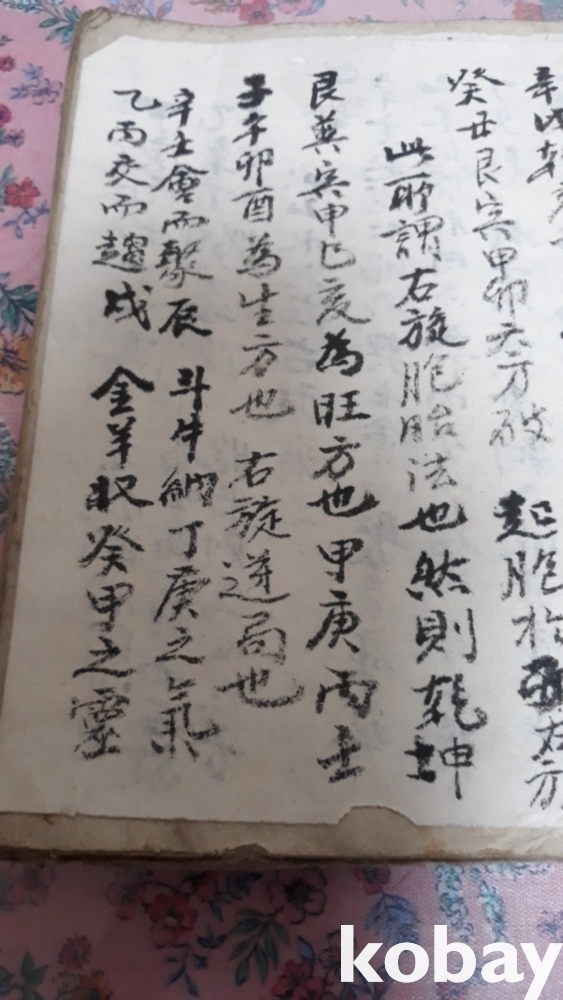 辛戌乾 起胞於 右方
癸丑艮寅甲卯六方破
此所謂右旋胞胎法也然則乾坤
艮巽寅申巳亥為旺方也甲庚丙壬
子午卯酉為生方也 右旋逆局也
辛壬會而聚辰 斗牛納丁庚之氣
乙丙交而趨戌 金羊收癸甲之靈
kobay